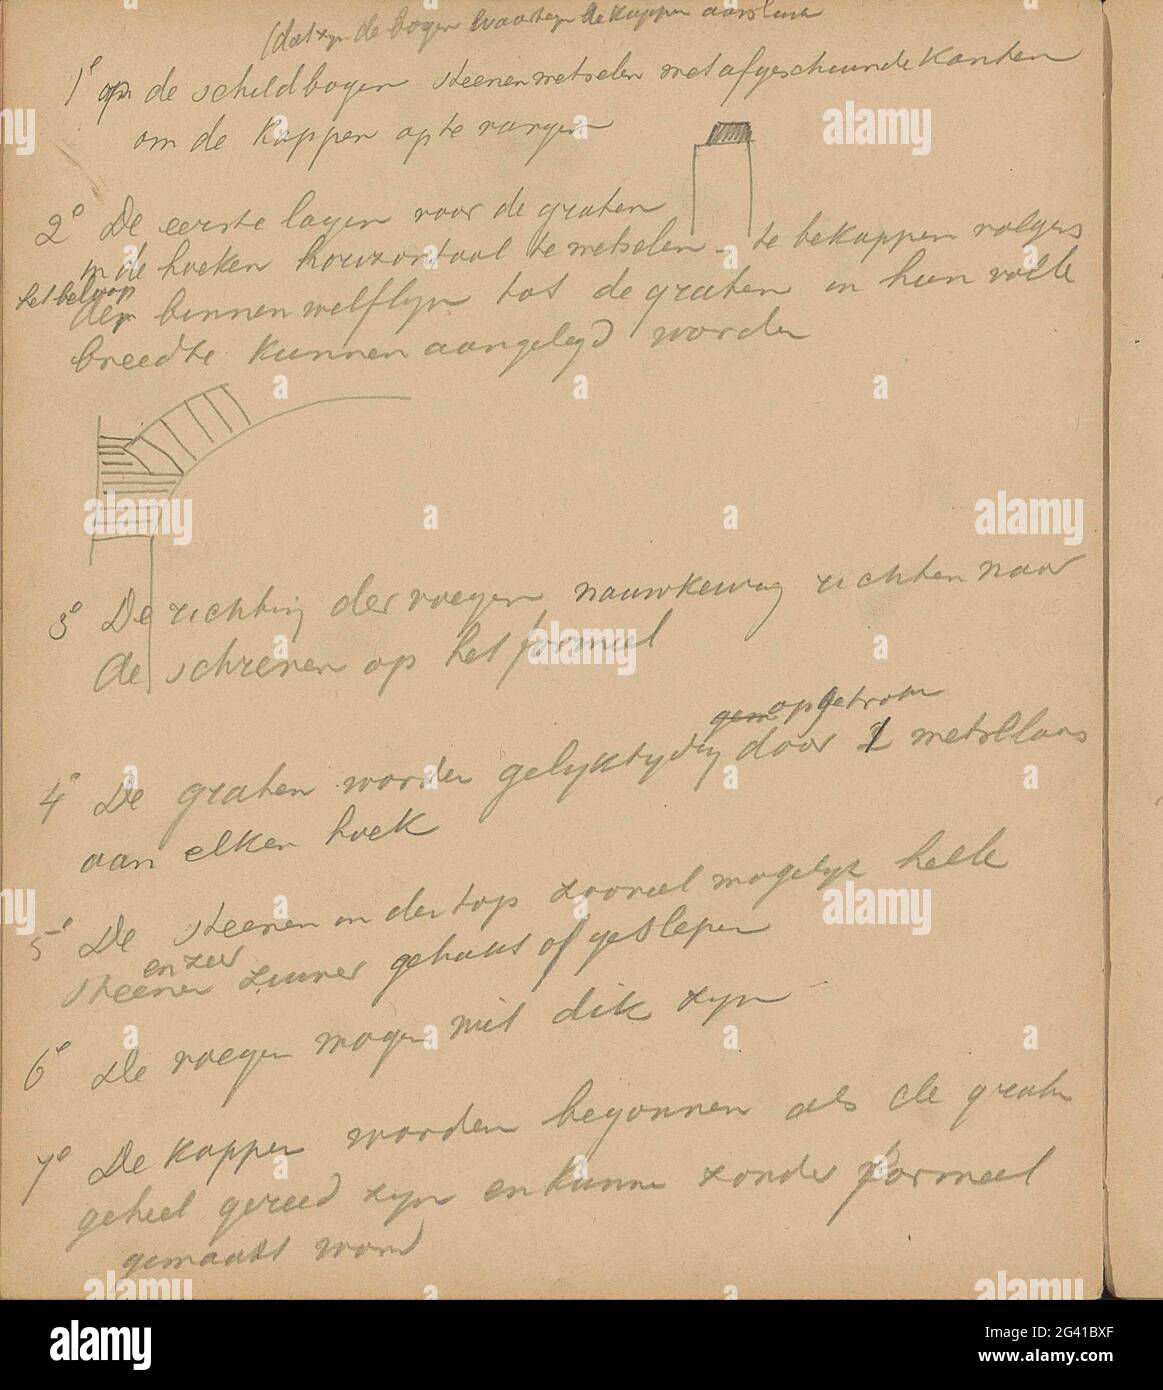 (dat zyn de bogen waartegen de kappen aansluiten
1e op de schildbogen steenen metselen met afgeschuinde kanten
om de kappen op te vangen
2e De eerste lagen voor de graten
in de hoeken horizontaal te metselen - te bekappen volgens
het beloop
der binnenwelflyn tot de graten in hun volle
breedte kunnen aangelegd worden
3e De richting der voegen nauwkeurig richten naar
de schrenen op het formeel
opgetrokken
4e De graten worden gelyktydig door 1 metselaar
aan elken hoek
5e De steenen in der top zooveel mogelyk heele
en zeer
steenen zuiver gehakt of geslepen
6e De voegen mogen niet dik zyn
7e De kappen worden begonnen als de graten
geheel gereed zyn en kunnen zonder formeel
gemaakt word
alamy
Image ID: 2G41BXF
www.alamy.com